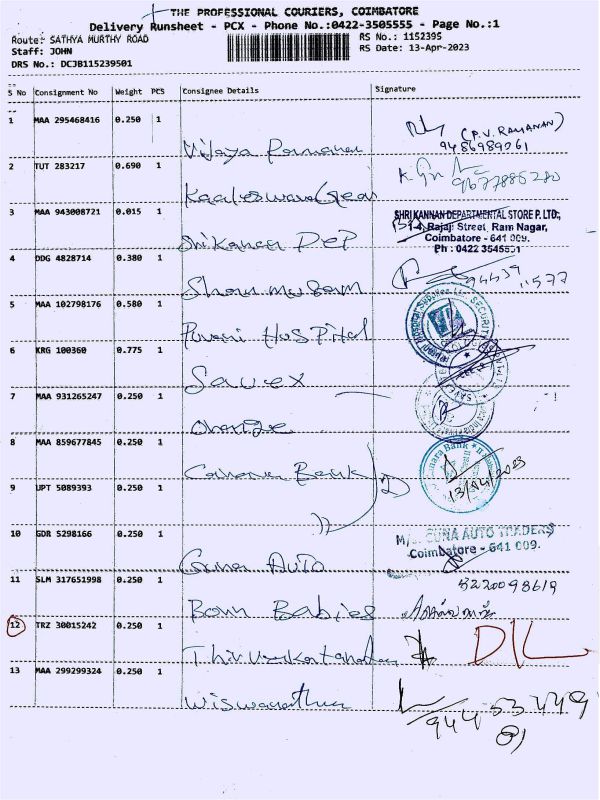 THE PROFESSIONAL COURIERS, COIMBATORE
Delivery Runsheet - PCX - Phone No.:0422-3505555 - Page No.:1
Route: SATHYA MURTHY ROAD
RS No.: 1152395
Staff: JOHN
RS Date: 13-Apr-2023
DRS No.: DCJB115239501
S No Consignment No Weight PCS Consignee Details Signature
1 MAA 295468416 0.250 1
(P.V. RAMANAN)
Vijaya
2 TUT 283217 0.690 1
3 MAA 943008721 0.015 1
SHRI KANNAN DEPARTMENTAL STORE P. LTD.,
1-4, Rajaji Street, Ram Nagar,
Coimbatore - 641 009.
Ph : 0422 3545551
Sri Kanan Dep
4 DDG 4828714 0.380 1
Shanmugam
5 MAA 102798176 0.580 1
Hospital
6 KRG 100360 0.775 1
Savex
7 MAA 931265247 0.250 1
Orange
8 MAA 859677845 0.250 1
Canara Bank
13/04/2023
9 UPT 5089393 0.250 1
10 GDR 5298166 0.250 1
GUNA AUTO TRADERS
Coimbatore - 641 009.
Guna Auto
11 SLM 317651998 0.250 1
8220098619
Born Babies
12 TRZ 30015242 0.250 1
DIL
13 MAA 299299324 0.250 1
Wiswanathan